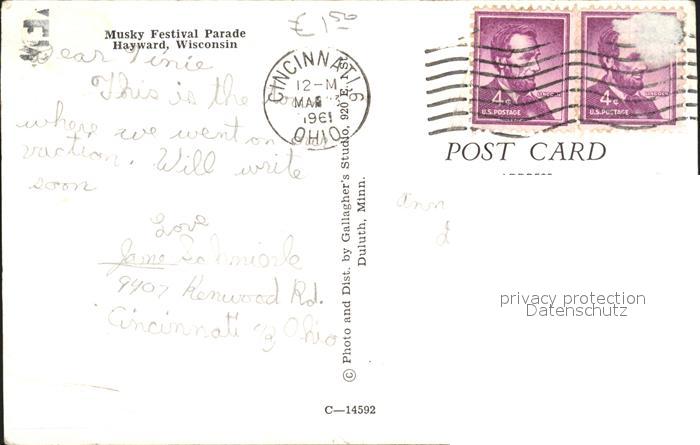 £1.50
Musky Festival Parade
Hayward, Wisconsin
Dear
This is the
where we went on our
vaction. Will write
soon
Love
Jane
9407 Kenwood Rd.
Cincinnati Ohio
CINCINNATI
12-M
MAR
1961
OHIO
4¢
LINCOLN
U.S. POSTAGE
4¢
U.S. POSTAGE
POST CARD
Ann
© Photo and Dist. by Gallagher's Studio, 920 E. 1st St.
Duluth, Minn.
privacy protection
Datenschutz
C—14592